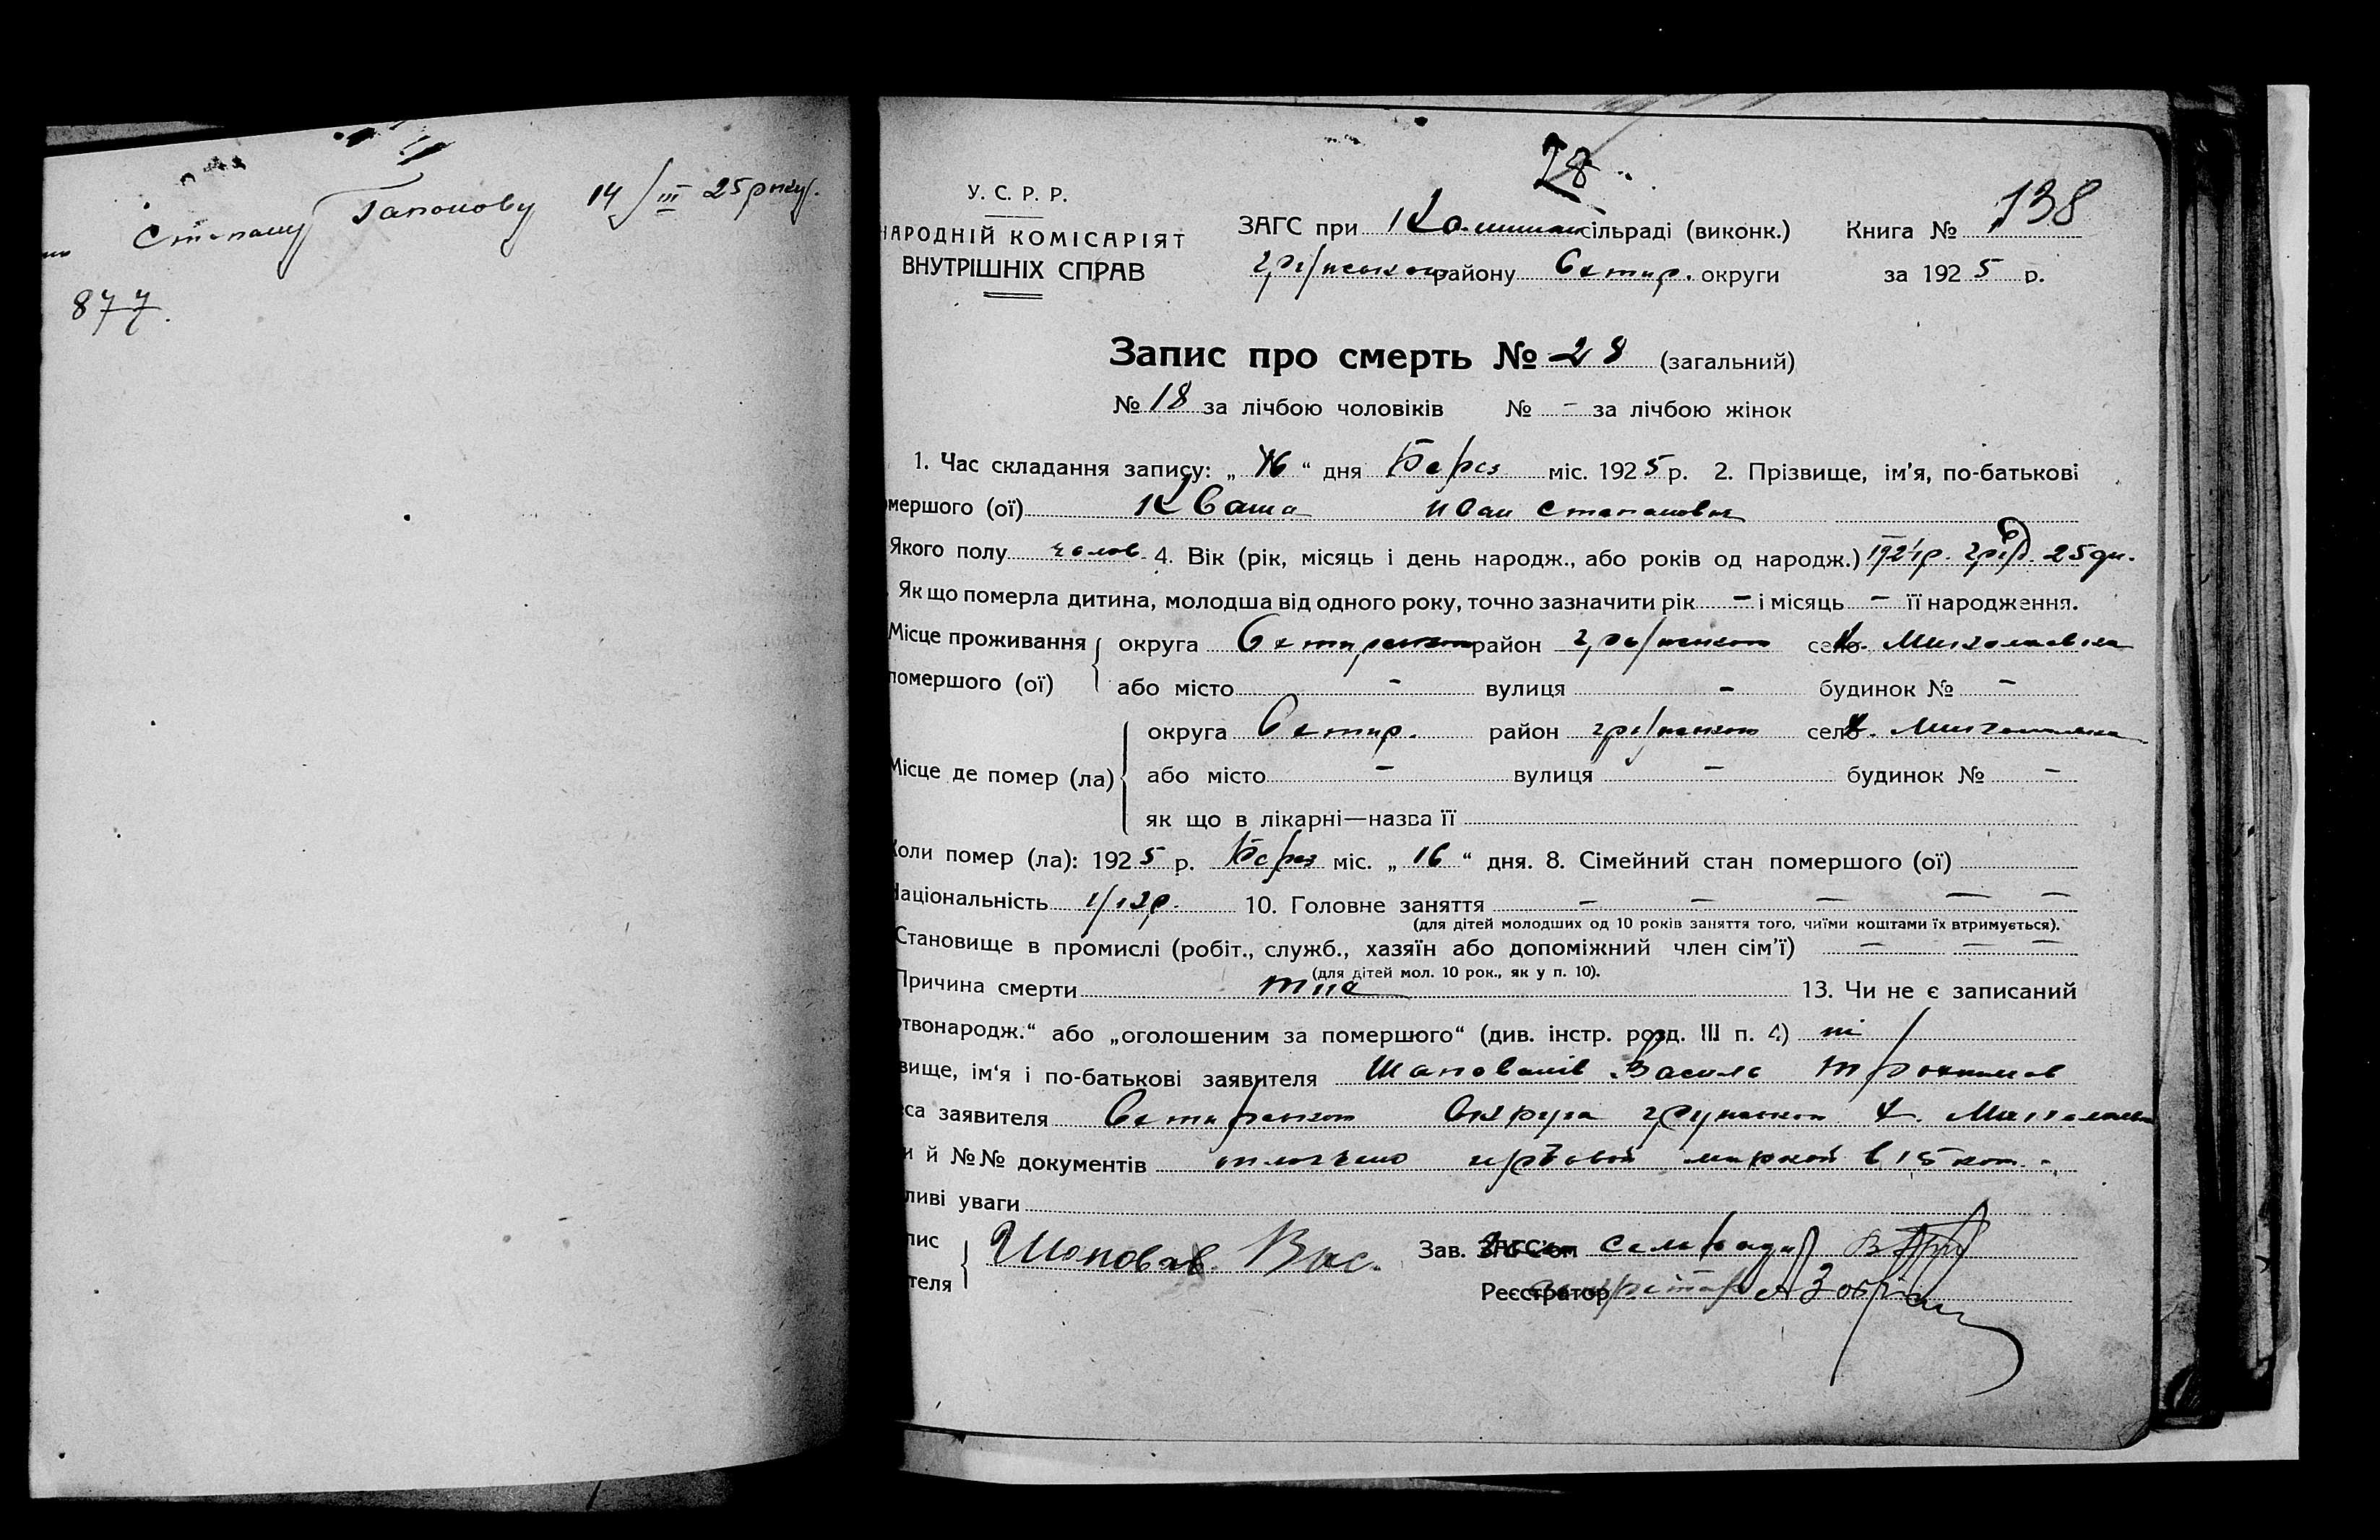 Степану Гапонову 14/III 25 року.
877.
28
138
У. С. Р. Р.
НАРОДНІЙ КОМІСАРІЯТ
ВНУТРІШНІХ СПРАВ
ЗАГС при сільраді (виконк.) Книга №
району Охтир. округи за 1925 р.
Запис про смерть № 28 (загальний)
№ 18 за лічбою чоловіків № – за лічбою жінок
1. Час складання запису: „ 16 “ дня Берез міс. 1925 р. 2. Прізвище, ім'я, по-батькові
мершого (ої) Кваша Иван Степанович
Якого полу чолов. 4. Вік (рік, місяць і день народж., або років од народж.) 1924р. 25 дн.
Як що померла дитина, молодша від одного року, точно зазначити рік – і місяць – її народження.
Місце проживання округа Охтирской район село х.
помершого (ої) або місто – вулиця – будинок № –
округа Охтир. район село х.
Місце де помер (ла) або місто – вулиця – будинок № –
як що в лікарні—назва її
Коли помер (ла): 1925 р. Берез міс. „ 16 “ дня. 8. Сімейний стан помершого (ої)
Національність Укр. 10. Головне заняття – – – – –
(для дітей молодших од 10 років заняття того, чиїми коштами їх втримується).
Становище в промислі (робіт., служб., хазяїн або допоміжний член сім'ї) – – –
(для дітей мол. 10 рок., як у п. 10).
Причина смерти 13. Чи не є записаний
твонародж.“ або „оголошеним за помершого“ (див. інстр. розд. III п. 4) ні
вище, ім'я і по-батькові заявителя Шаповалів Василь Трохимов
са заявителя Охтирской Округа х.
и й №№ документів маркой в 15 коп.
ливі уваги
пис Шаповал Вас. Зав. ЗАГС'ом Сельради
теля Реєстратор